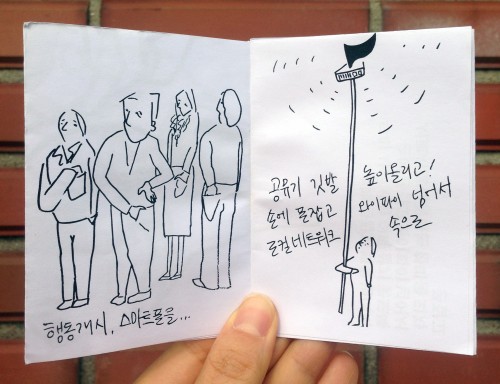 행동개시, 스마트폰을...
공유기 깃발 높이올리고!
손에 폰잡고 와이파이 넘어서
로컬네트워크 속으로